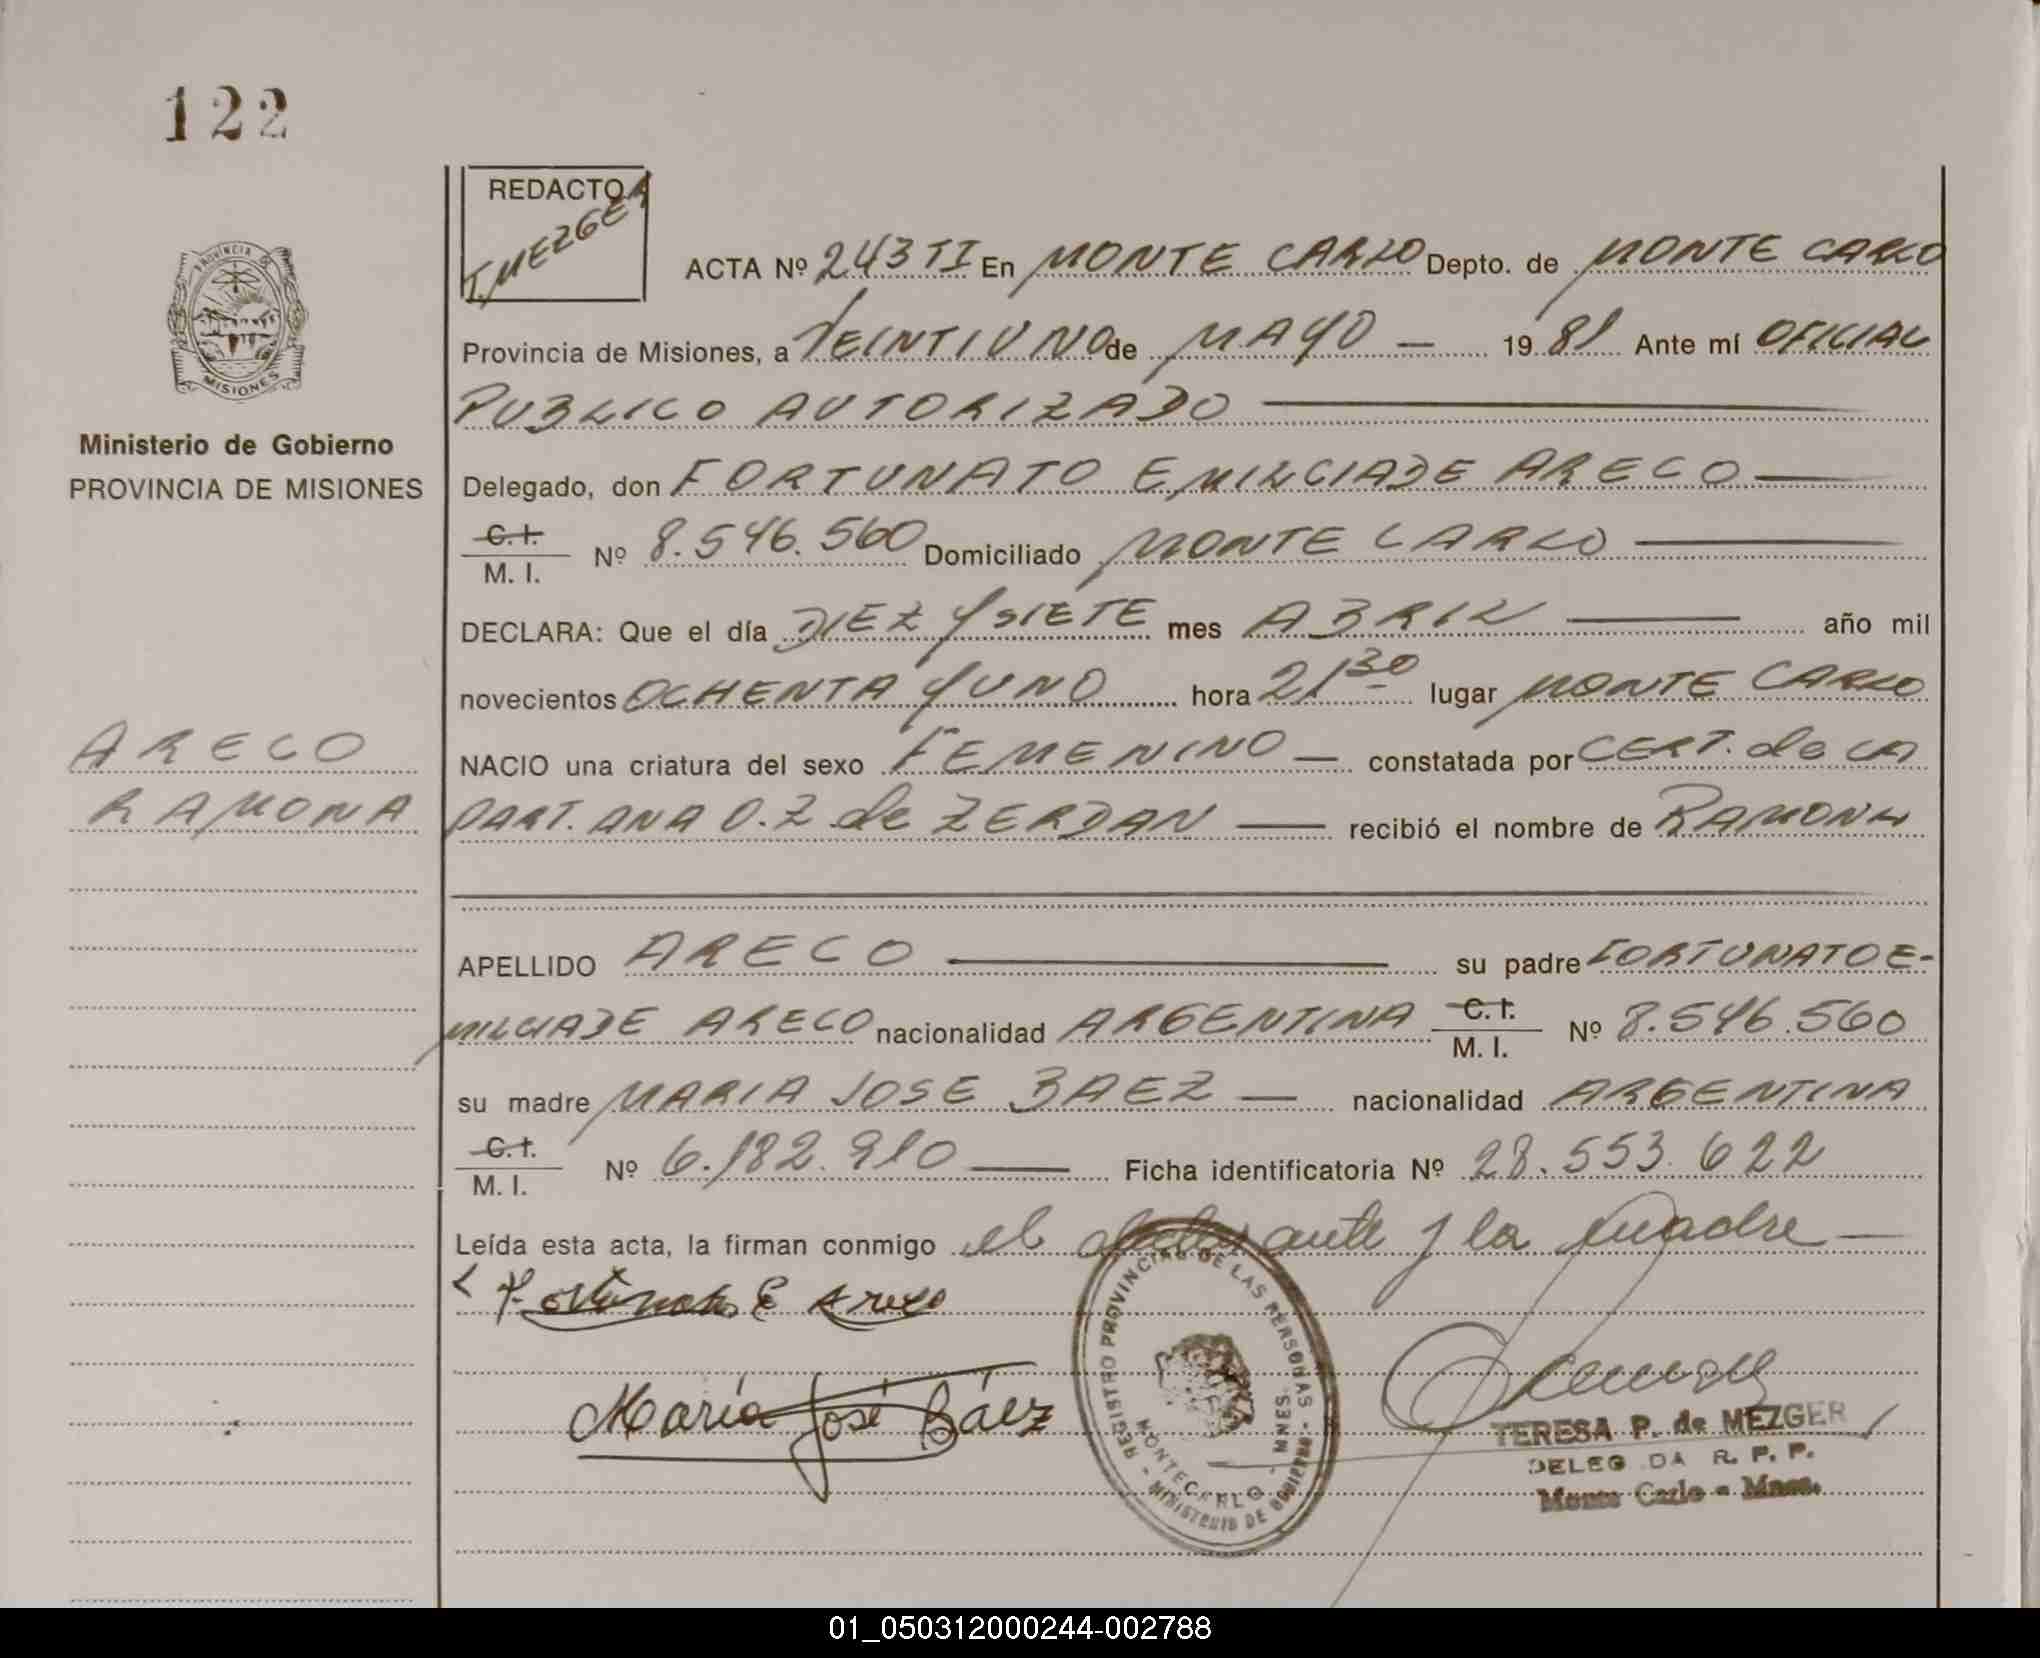 122
REDACTO
T. MEZGER
ACTA Nº 243 TI En MONTE CARLO Depto. de MONTE CARLO
Provincia de Misiones, a VEINTIUNO de MAYO — 1981 Ante mí OFICIAL
PUBLICO AUTORIZADO
Delegado, don FORTUNATO EMILCIADE ARECO
C. I.
M. I. Nº 8.546.560 Domiciliado MONTE CARLO
DECLARA: Que el día DIEZ Y SIETE mes ABRIL año mil
novecientos OCHENTA Y UNO hora 21 30 lugar MONTE CARLO
NACIO una criatura del sexo FEMENINO — constatada por CERT. de LA
PART. ANA O. Z. de ZERDAN — recibió el nombre de RAMONA
APELLIDO ARECO su padre FORTUNATO E-
MILCIADE ARECO nacionalidad ARGENTINA C. I. M. I. Nº 8.546.560
su madre MARIA JOSE BAEZ — nacionalidad ARGENTINA
C. I.
M. I. Nº 6.182.910 — Ficha identificatoria Nº 28.553.622
Leída esta acta, la firman conmigo el declarante y la madre —
Fortunato E Areco
María José Báez
PROVINCIA DE
MISIONES
Ministerio de Gobierno
PROVINCIA DE MISIONES
ARECO
RAMONA
REGISTRO PROVINCIAL DE LAS PERSONAS - MINISTERIO DE GOBIERNO -
MONTECARLO - MNES.
TERESA P. de MEZGER
DELEG DA R. P. P.
Monte Carlo - Mnes.
01_050312000244-002788